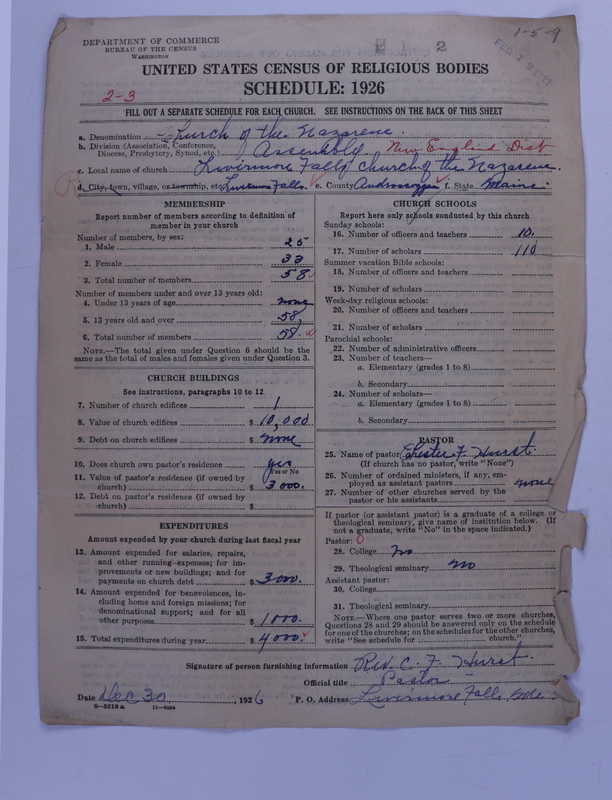 1-5-9
DEPARTMENT OF COMMERCE
BUREAU OF THE CENSUS
WASHINGTON
2
FEB 19 1927
UNITED STATES CENSUS OF RELIGIOUS BODIES
SCHEDULE: 1926
2-3
FILL OUT A SEPARATE SCHEDULE FOR EACH CHURCH. SEE INSTRUCTIONS ON THE BACK OF THIS SHEET
a. Denomination Church of the Nazarene.
b. Division (Association, Conference, Diocese, Presbytery, Synod, etc.) Assembly New England Dist
c. Local name of church Livermore Falls church of the Nazarene.
d. City, town, village, or township, etc. Livermore Falls. e. County Androscoggin f. State Maine.
MEMBERSHIP
Report number of members according to definition of member in your church
Number of members, by sex:
1. Male 25
2. Female 33
3. Total number of members 58
Number of members under and over 13 years old:
4. Under 13 years of age none
5. 13 years old and over 58,
6. Total number of members 58.
NOTE.—The total given under Question 6 should be the same as the total of males and females given under Question 3.
CHURCH BUILDINGS
See instructions, paragraphs 10 to 12
7. Number of church edifices 1
8. Value of church edifices $ 10,000
9. Debt on church edifices $ none
10. Does church own pastor's residence yes
Yes or No
11. Value of pastor's residence (if owned by church) $ 3000.
12. Debt on pastor's residence (if owned by church) $
EXPENDITURES
Amount expended by your church during last fiscal year
13. Amount expended for salaries, repairs, and other running expenses; for improvements or new buildings; and for payments on church debt $ 3000.
14. Amount expended for benevolences, including home and foreign missions; for denominational support; and for all other purposes $ 1000.
15. Total expenditures during year $ 4000.
CHURCH SCHOOLS
Report here only schools conducted by this church
Sunday schools:
16. Number of officers and teachers 10.
17. Number of scholars 110
Summer vacation Bible schools:
18. Number of officers and teachers
19. Number of scholars
Week-day religious schools:
20. Number of officers and teachers
21. Number of scholars
Parochial schools:
22. Number of administrative officers
23. Number of teachers—
a. Elementary (grades 1 to 8)
b. Secondary
24. Number of scholars—
a. Elementary (grades 1 to 8)
b. Secondary
PASTOR
25. Name of pastor F. Hurst.
(If church has no pastor, write "None")
26. Number of ordained ministers, if any, employed as assistant pastors none
27. Number of other churches served by the pastor or his assistants
If pastor (or assistant pastor) is a graduate of a college or theological seminary, give name of institution below. (If not a graduate, write "No" in the space indicated.)
Pastor: 0
28. College no
29. Theological seminary no
Assistant pastor:
30. College
31. Theological seminary
NOTE.—Where one pastor serves two or more churches, Questions 28 and 29 should be answered only on the schedule for one of the churches; on the schedules for the other churches, write "See schedule for church."
Signature of person furnishing information Rev. C. F. Hurst.
Official title Pastor
Date Dec 30, 1926 P. O. Address Livermore Falls,
8-5518a 11-9064